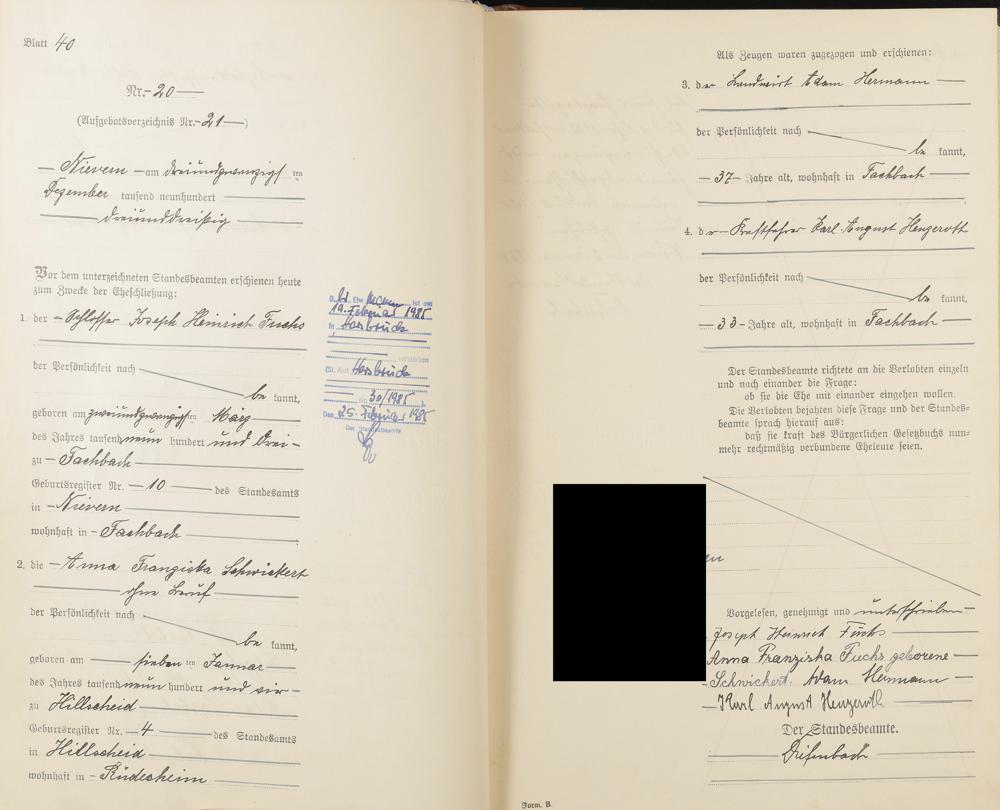 Blatt 40
Nr. 20
(Aufgebotsverzeichnis Nr. 21)
Nievern am dreiundzwanzigsten
Dezember tausend neunhundert
dreiunddreißig
Vor dem unterzeichneten Standesbeamten erschienen heute
zum Zwecke der Eheschließung:
1. der Schlosser Joseph Heinrich Fuchs
der Persönlichkeit nach
be kannt,
geboren am zweiundzwanzigsten März
des Jahres tausend neun hundert und drei
zu Fachbach
Geburtsregister Nr. 10 des Standesamts
in Nievern
wohnhaft in Fachbach
2. die Anna Franziska Schwickert
ohne Beruf
der Persönlichkeit nach
be kannt,
geboren am sieben ten Januar
des Jahres tausend neun hundert und vier
zu Hillscheid
Geburtsregister Nr. 4 des Standesamts
in Hillscheid
wohnhaft in Rüdesheim
D. Ehe ist am
19. Februar 1985
in
verstorben
(St. Amt
Nr. 30/1985 ).
Den 25. Februar 1985
Der Standesbeamte
Als Zeugen waren zugezogen und erschienen:
3. der Landwirt Adam Hermann
der Persönlichkeit nach
be kannt,
37 Jahre alt, wohnhaft in Fachbach
4. der Kraftfahrer Karl August Henzeroth
der Persönlichkeit nach
be kannt,
33 Jahre alt, wohnhaft in Fachbach
Der Standesbeamte richtete an die Verlobten einzeln
und nach einander die Frage:
ob sie die Ehe mit einander eingehen wollen.
Die Verlobten bejahten diese Frage und der Standes-
beamte sprach hierauf aus:
daß sie kraft des Bürgerlichen Gesetzbuchs nun-
mehr rechtmäßig verbundene Eheleute seien.
en
Vorgelesen, genehmigt und unterschrieben
Joseph Heinrich Fuchs
Anna Franziska Fuchs geborene
Schwickert. Adam Hermann
Karl August Henzeroth
Der Standesbeamte.
Diefenbach
Form. B.